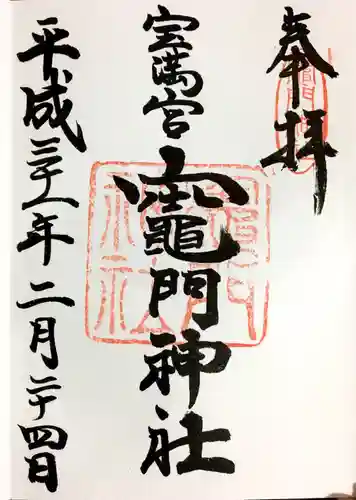 奉拝
宝満宮
竈門神社
平成三十一年二月二十四日
竈門神社